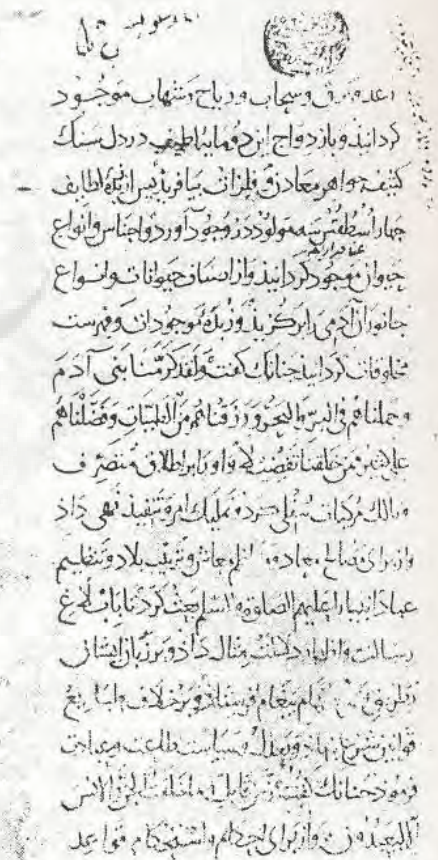 رعد و برق و سحاب و ریاح و شهاب موجود
کردانیذ و بازدواج این دو مایهٔ لطیف در دل سنک
کثیف جواهر معادن و فلزات بیافریذ پس از زبدهٔ لطایف
چهار اسطقس سه مولود در وجود آورد و اجناس و انواع
عناصر اربعه
حیوان موجود کردانیذ و از اصناف حیوانات و انواع
جانوران آدمی را برکزیذ و زبدهٔ موجودات و فهرست
مخلوقات کردانیذ جنانک کفت ولقد کرمنا بنی آدم
وحملناهم فی البر والبحر ورزقناهم من الطیبات وفضلناهم
علی کثیر ممن خلقنا تفضیلا و او را بر اطلاق متصرف
و مالک مرکبات سفلی کرد و تملیک امر و تنفیذ نهی داذ
و از برای مصالح معاد و نظم معاش و ترتیب بلاد و تنظیم
عباد انبیا را علیهم الصلوة والسلم بعث کرد تا باب بلاغ
رسالت و اظهار دلالت مثال داذ و بر زبان ایشان
بیغام فرستاذ و بر خلاف
قوانین شرع نهاد و سیاست طاعت و عبادت
فرموذ جنانک کفت عز من قایل وما خلقت الجن والانس
الا لیعبدون و از برای احکام و استحکام قواعد